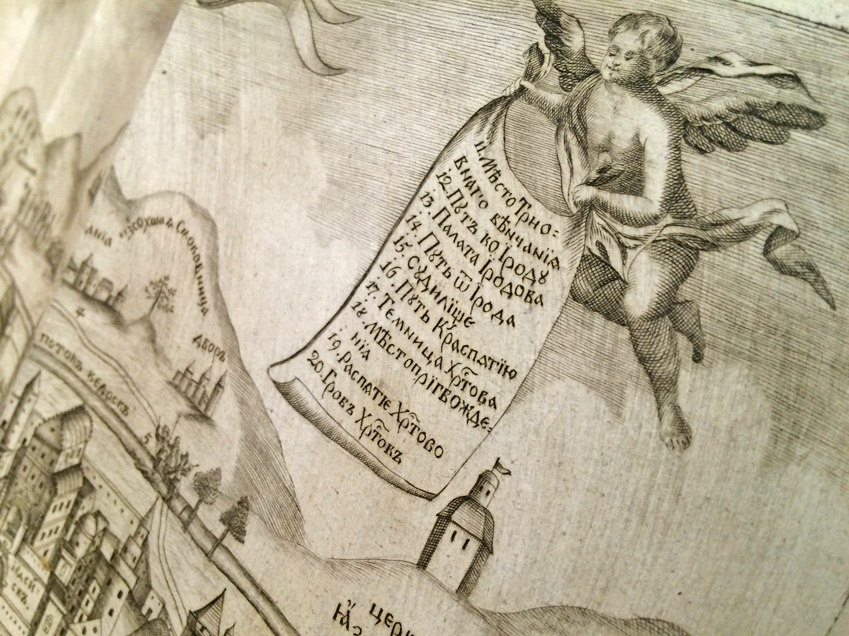 11. Мѣсто Трно=
внаго вѣнчанїѧ
12. Пꙋть ко Іродꙋ
13. Палата Іродова
14. Пꙋть ѿ Ірода
15. Сꙋдилїще
16. Пꙋть К̾распатїю
17. Темница Хрⷭ҇това
18. Мѣстопрїгвожде=
нїа
19. распатїе Хрⷭ҇тово
20. Гробъ Хрⷭ҇товъ
изсохшаѧ Смоковница
дворъ
4
потокъ кедрскъ
5